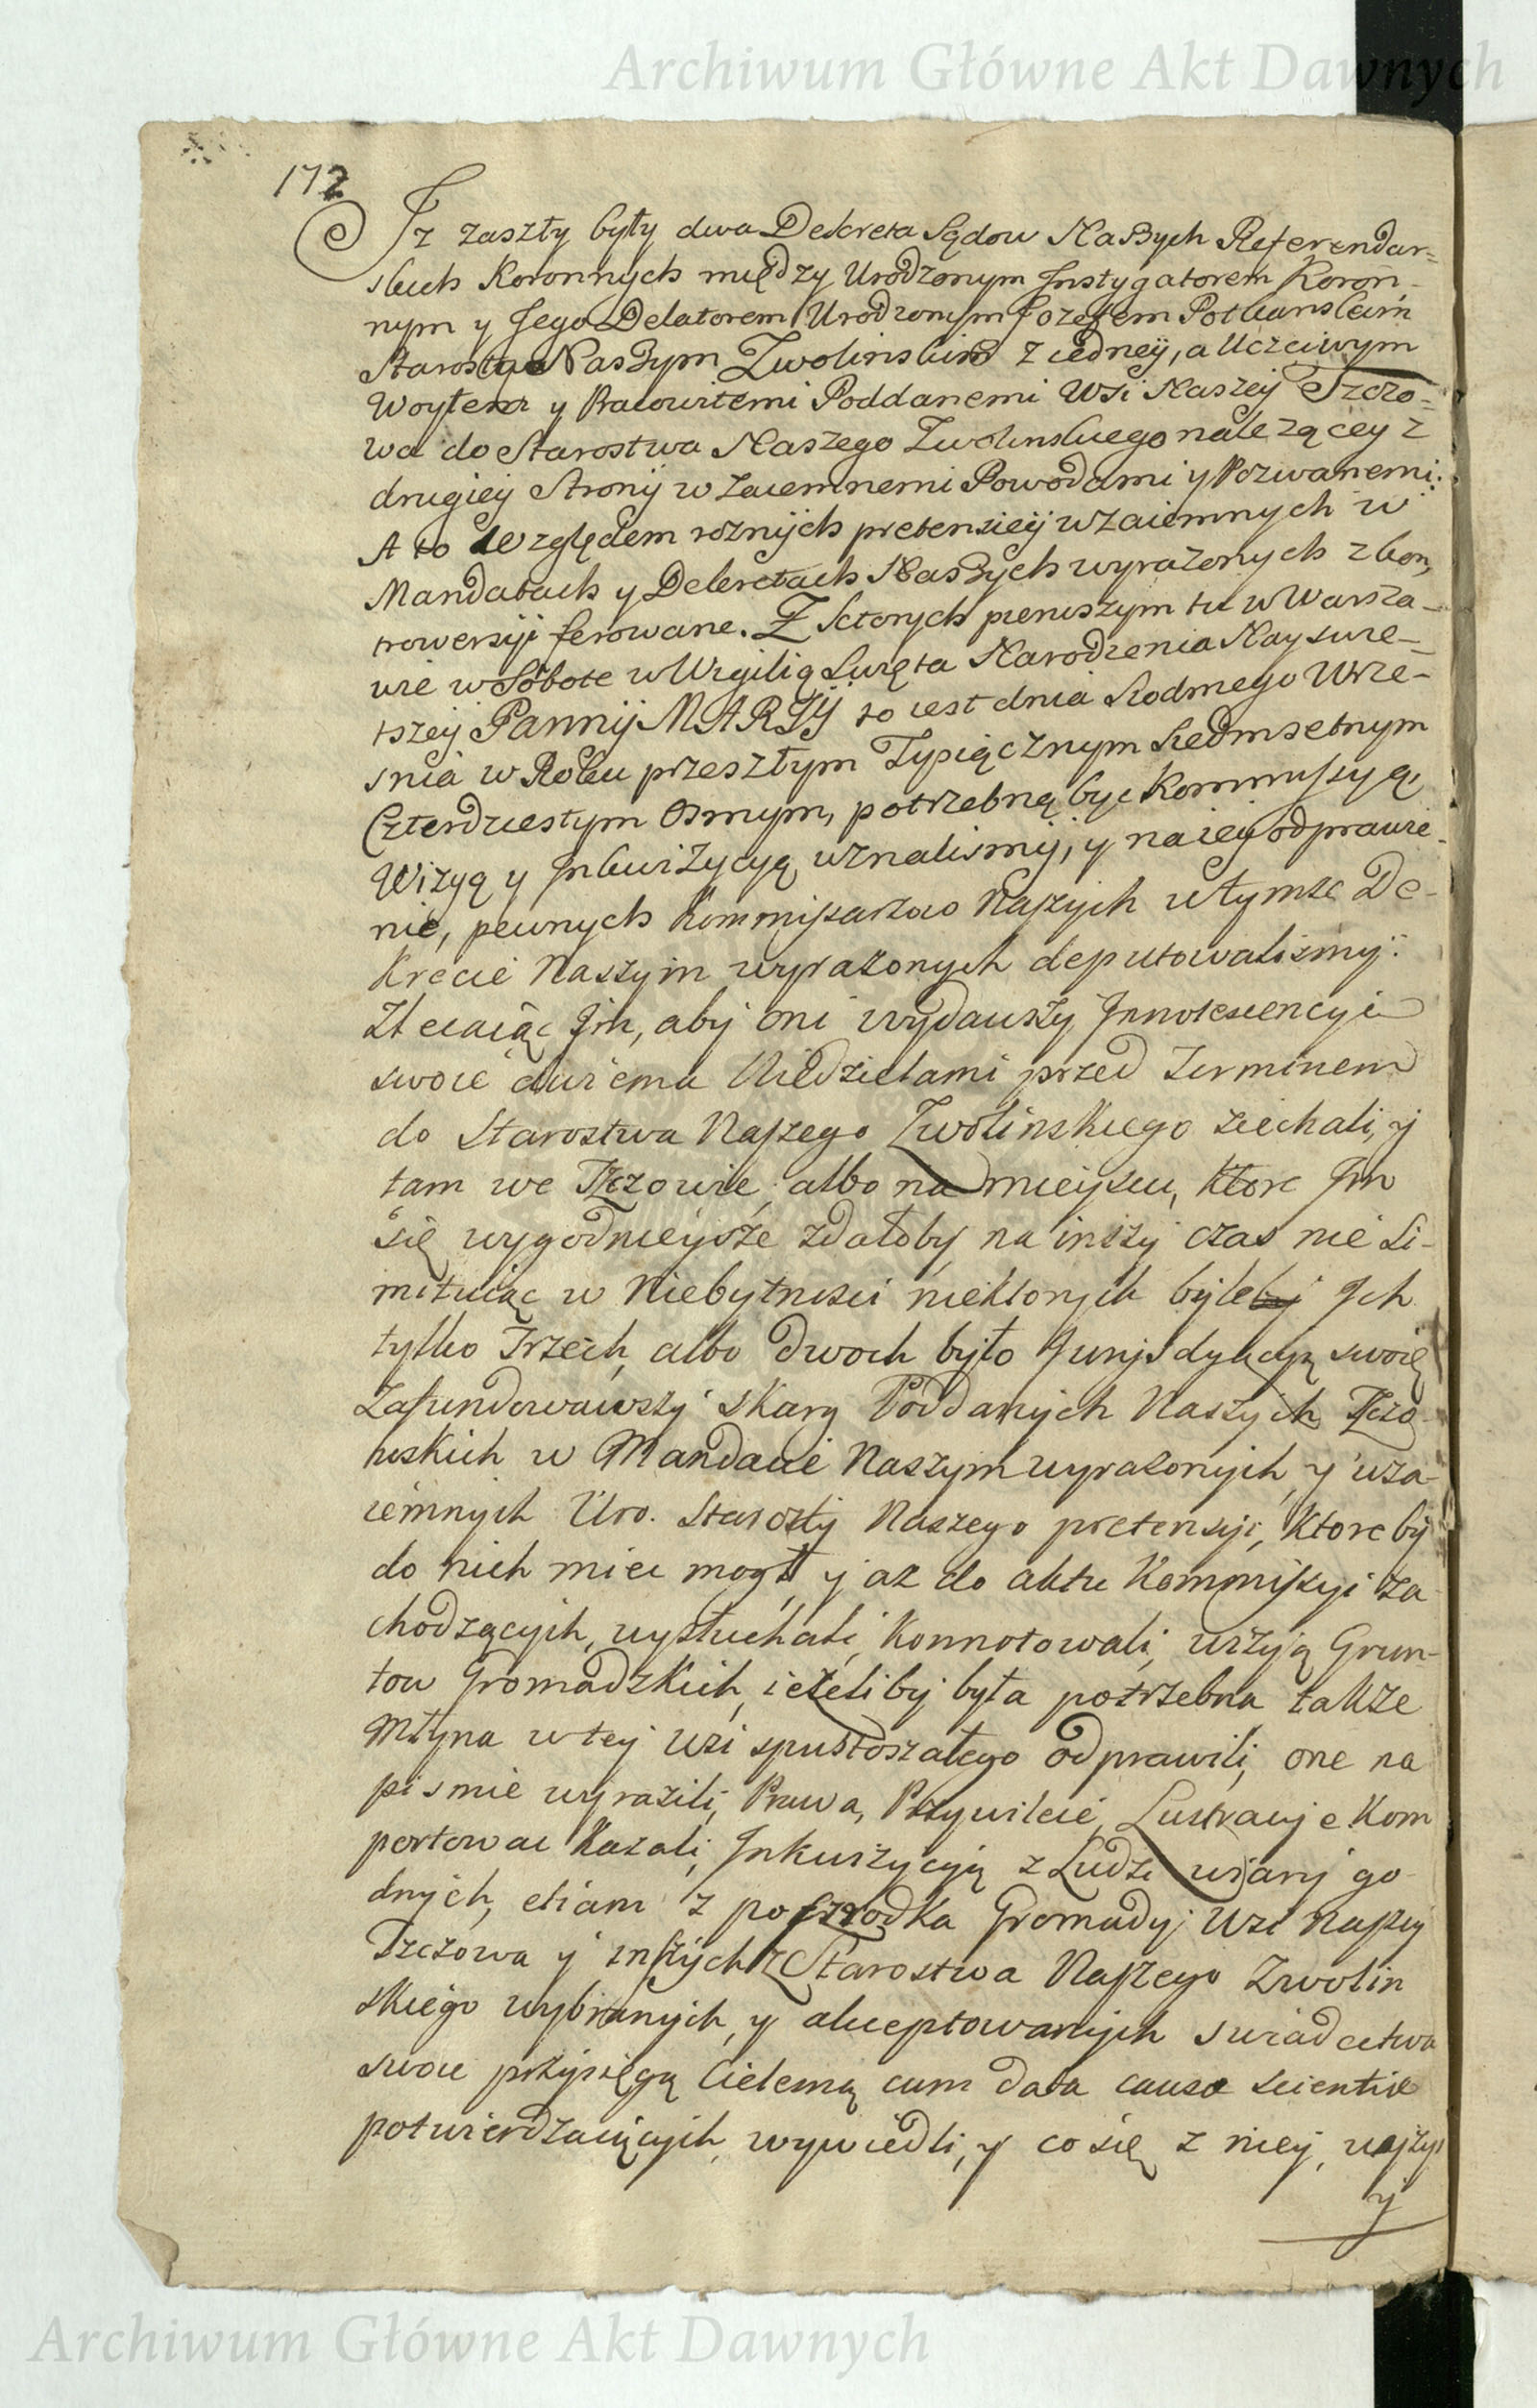 Archiwum Główne Akt Dawnych
172
Iż zaszły były dwa Dekreta Sądow Naszych Referendar=
skich Koronnych między Urodzonym Instygatorem Koron-
nym y Jego Delatorem Urodzonym Jozefem Potkanskim
Starostą Naszym Zwolinskim z iedneÿ, a Uczciwym
Woytem y Pracowitemi Poddanemi Wsi Naszeÿ Tczo=
wa do Starostwa Naszego Zwolinskiego należącey z
drugiey Stronÿ wzaiemnemi Powodami y Pozwanemi:
A to Względem rożnÿch pretensieÿ wzaiemnych w
Mandatach y Dekretach Naszych wyrażonych z kon,
trowersÿi ferowane. Z Ktorych pierwszym tu w Warsza-
wie w Sobotę w Wigilią Swięta Narodzenia Nayswię-
tszeÿ Pannÿ MARYÿ to iest dnia Siodmego Wrze-
snia w Roku przeszłym Tysiącznym Siedmsetnym
Czterdziestym Osmym, potrzebną byc Kommissyą,
Wizyą y Inkwizycyą uznalismÿ, y na ieÿ odprawie-
nie, pewnych Kommissarzow Naszych w tymże De-
krecie Naszym wyrażonych deputowalismÿ:
Zlecaiąc Im, abÿ oni wydawszy Innotescencyie
swoie dwiema Niedzielami przed Terminem
do Starostwa Naszego Zwolinskiego ziechali, y
tam we Tczowie, albo na mieyscu, ktore Im
się wygodnieysze zdałoby, na inszÿ czas nie li-
mituiąc w Niebytnosci niektorych byle Ich
tylko Trzech, albo dwoch było Jurysdykcyą swoię
Zafundowawszy skarg Poddanych Naszych Tczo-
wskich w Mandacie Naszym wyrażonych, y wza-
iemnych Uro. Starosty Naszego pretensyi, ktoreby
do nich miec mogł, y aż do aktu Kommissyi za-
chodzących, wysłuchali, konnotowali, wizyą Grun-
tow Gromadzkich, ieżeliby była potrzebna także
Młyna w tey wsi spustoszałego odprawili, one na
pismie wyrazili, Prawa, Przywileie, Lustracye kom
portowac kazali, Inkwizycyą z Ludzi wiary go-
dnych, etiam z poszrodka Gromady Wsi Naszey
Tczowa y inszych z Starostwa Naszego Zwolin
skiego wybranych, y akceptowanych swiadectwa
swoie przysięgą cielesną cum data causa scientiæ
potwierdzaiących, wywiedli, y co się z niey,
y
Archiwum Główne Akt Dawnych